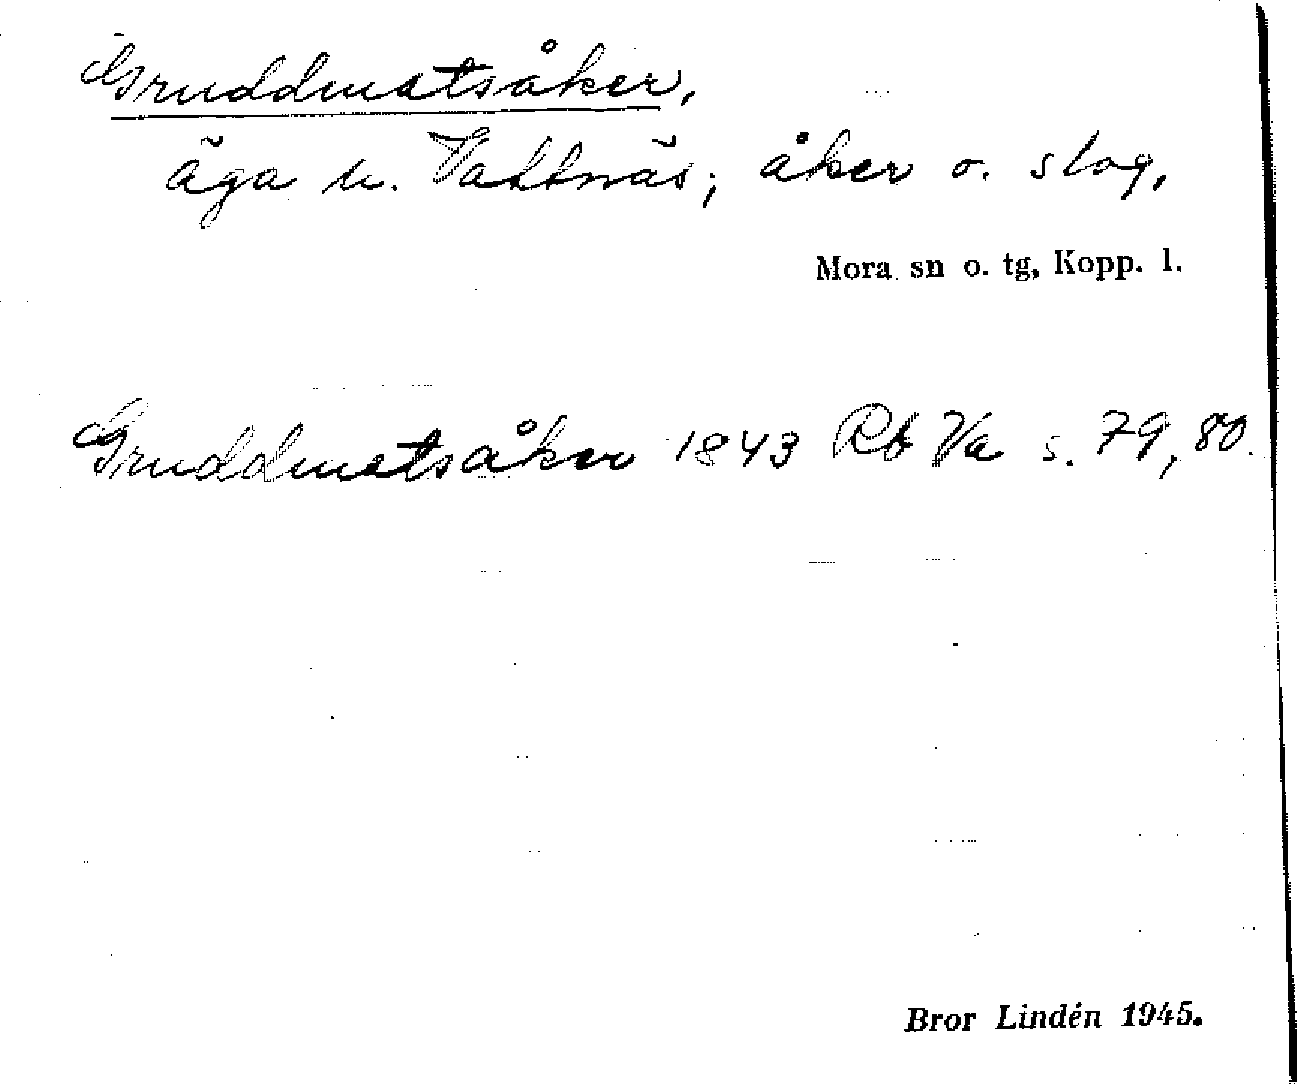 Gruddmatsåker,
äga u. Vattnäs; åker o. slog,
Mora sn o. tg, Kopp. l.
Gruddmatsåker 1843 Rb Va s. 79, 80.
Bror Lindén 1945.